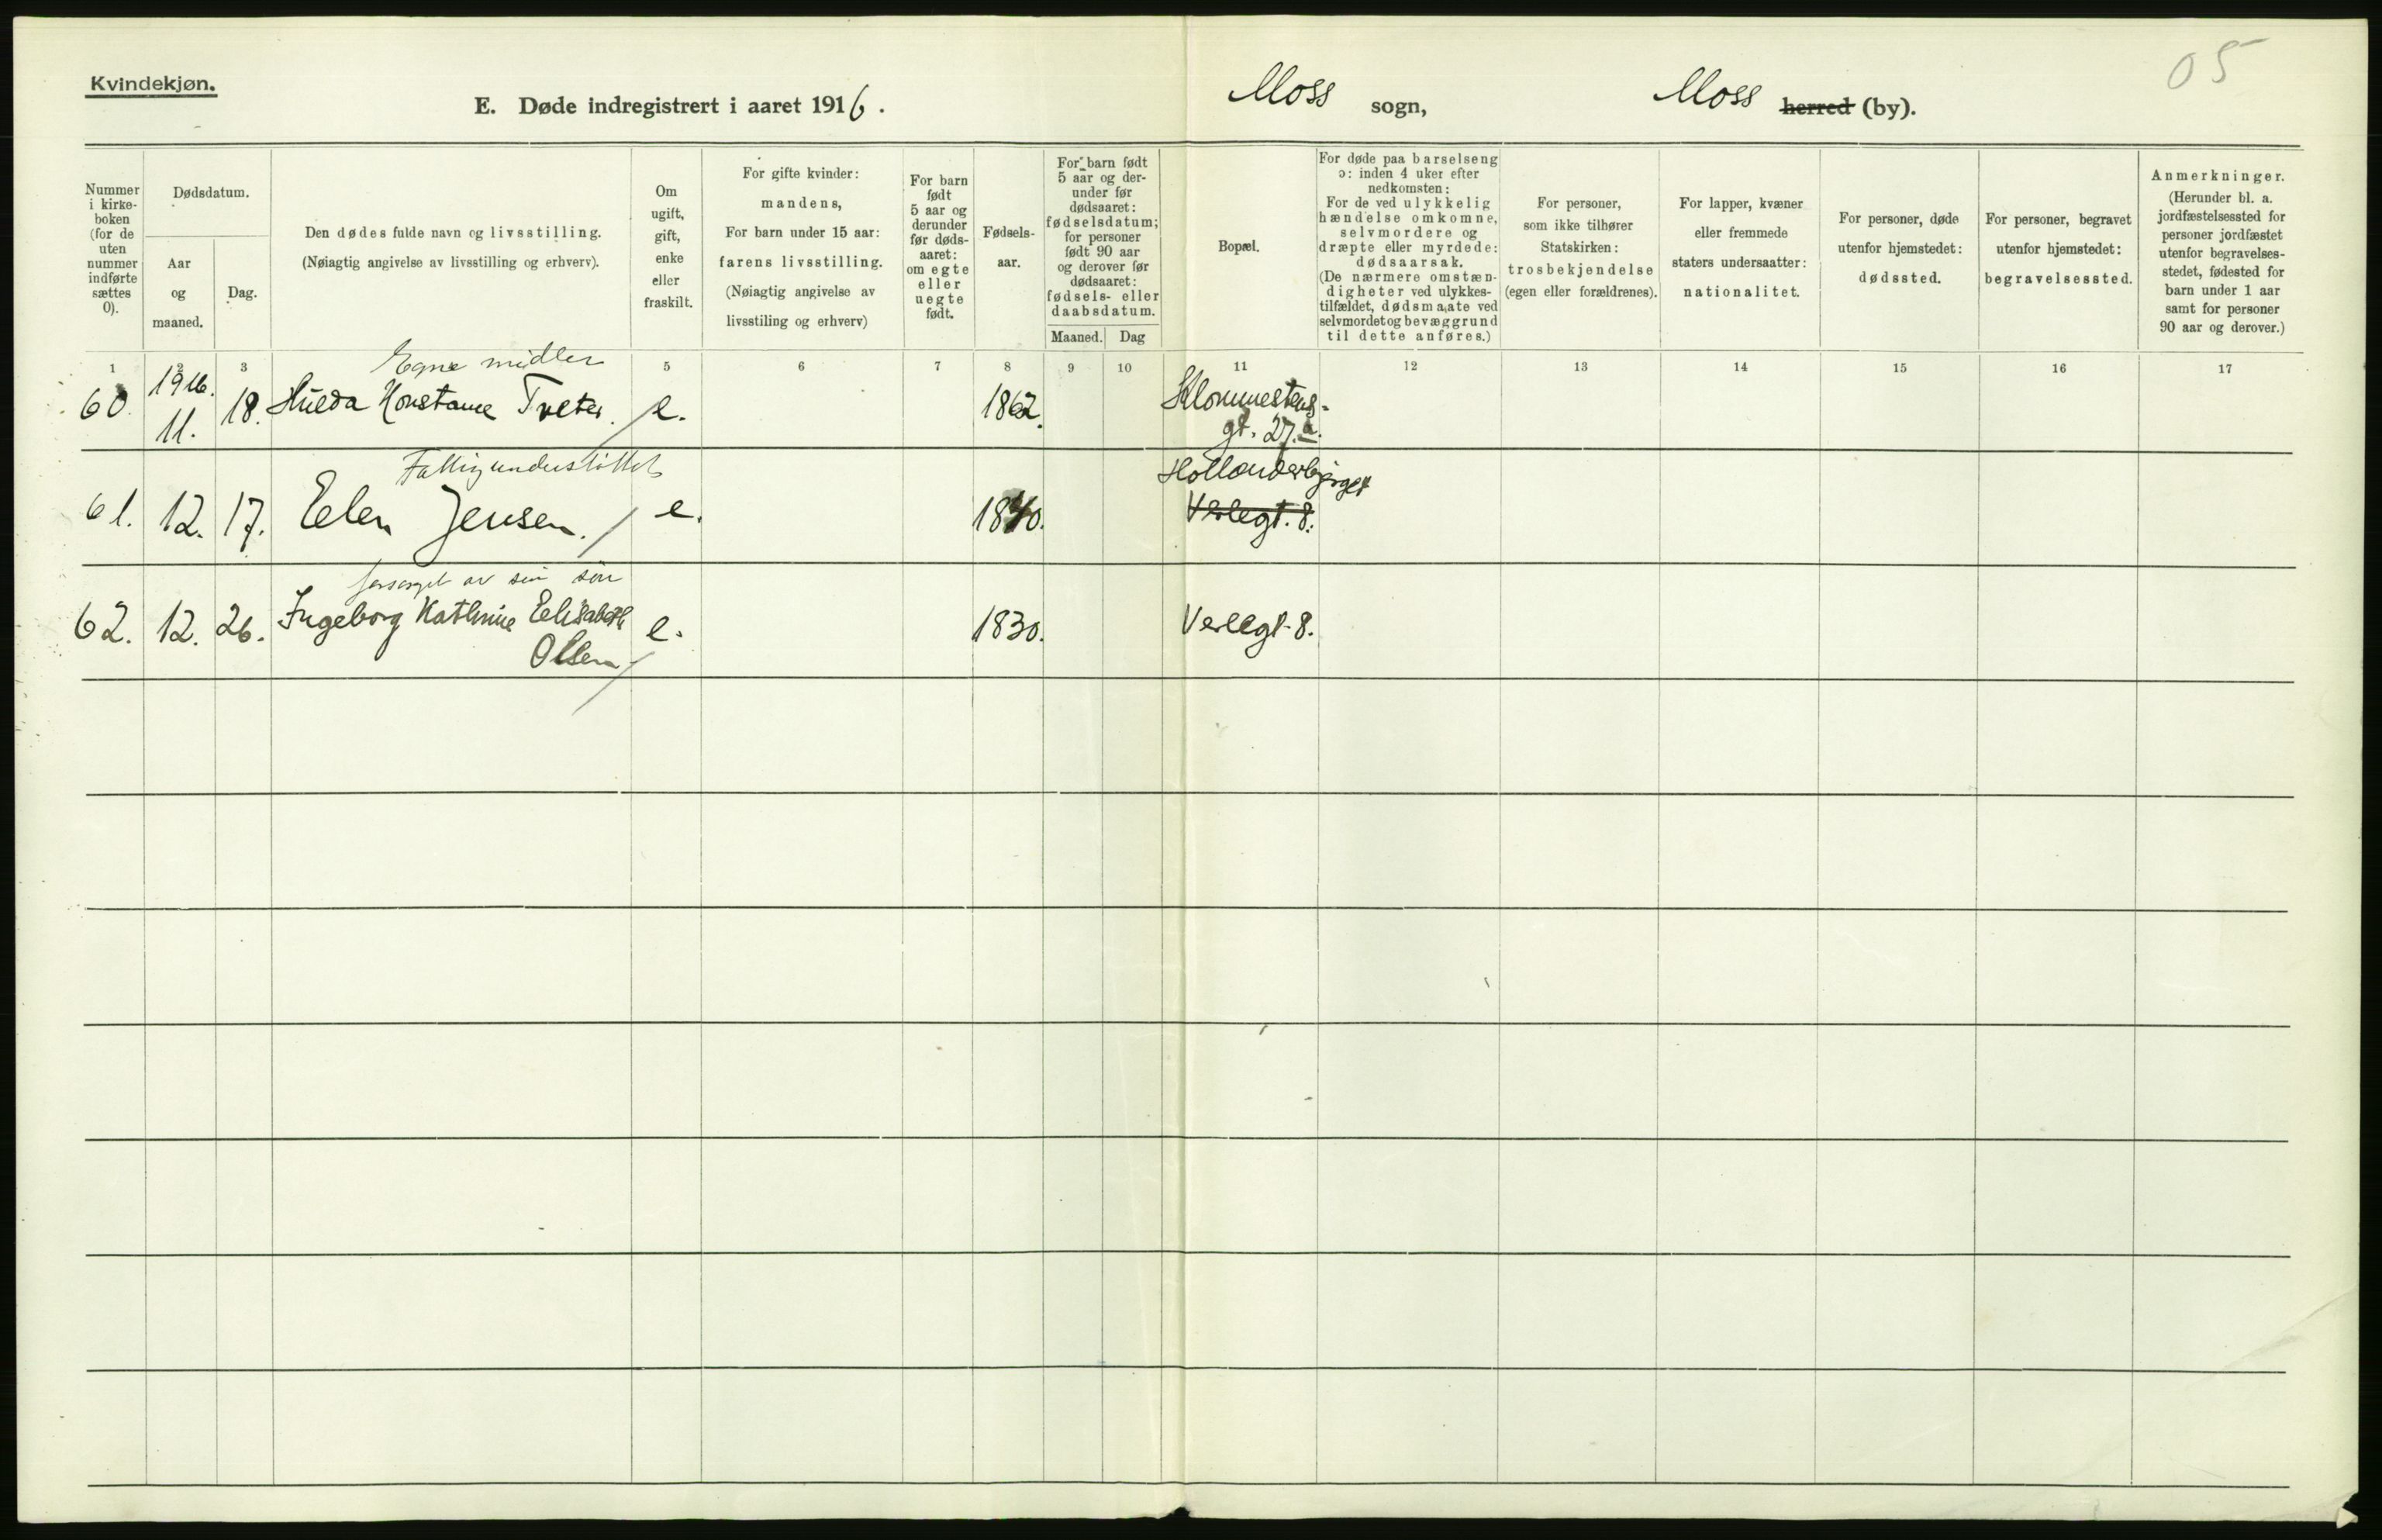 Kvindekjøn.
05
E. Døde indregistrert i aaret 1916.
Moss sogn,
Moss herred (by).
Nummer i kirke-
boken
(for de
uten
nummer
indførte
sættes
0).
Dødsdatum.
Aar
og
maaned.
Dag.
Den dødes fulde navn og livsstilling.
(Nøiagtig angivelse av livsstilling og erhverv).
Om
ugift,
gift,
enke
eller
fraskilt.
For gifte kvinder:
mandens,
For barn under 15 aar:
farens livsstilling.
(Nøiagtig angivelse av
livsstiling og erhverv)
For barn
født
5 aar og
derunder
før døds-
aaret:
om egte
eller
uegte
født.
Fødsels-
aar.
For barn født
5 aar og der-
under før
dødsaaret:
fødselsdatum;
for personer
født 90 aar
og derover før
dødsaaret:
fødsels- eller
daabsdatum.
Maaned. Dag
Bopæl.
For døde paa barselseng
ɔ: inden 4 uker efter
nedkomsten:
For de ved ulykkelig
hændelse omkomne,
selvmordere og
dræpte eller myrdede:
dødsaarsak.
(De nærmere omstæn-
digheter ved ulykkes-
tilfældet, dødsmaate ved
selvmordet og bevæggrund
til dette anføres.)
For personer,
som ikke tilhører
Statskirken:
trosbekjendelse
(egen eller forældrenes).
For lapper, kvæner
eller fremmede
staters undersaatter:
nationalitet.
For personer, døde
utenfor hjemstedet:
dødssted.
For personer, begravet
utenfor hjemstedet:
begravelsessted.
Anmerkninger.
(Herunder bl. a.
jordfæstelsessted for
personer jordfæstet
utenfor begravelses-
stedet, fødested for
barn under 1 aar
samt for personer
90 aar og derover.)
1 2 3 5 6 7 8 9 10 11 12 13 14 15 16 17
Egne midler
60. 1916. 11. 18. Hulda Konstance Tveter. e. 1862.
gt. 27.a.
Fattigunderstøttet
61. 12. 17. Elen Jensen. e. 1840. Hollenderbjerget
Verlegt. 8.
forsørget av sin søn
62. 12. 26. Ingeborg Kathrine Elisabeth e. 1830. Verlegt. 8.
Olsen